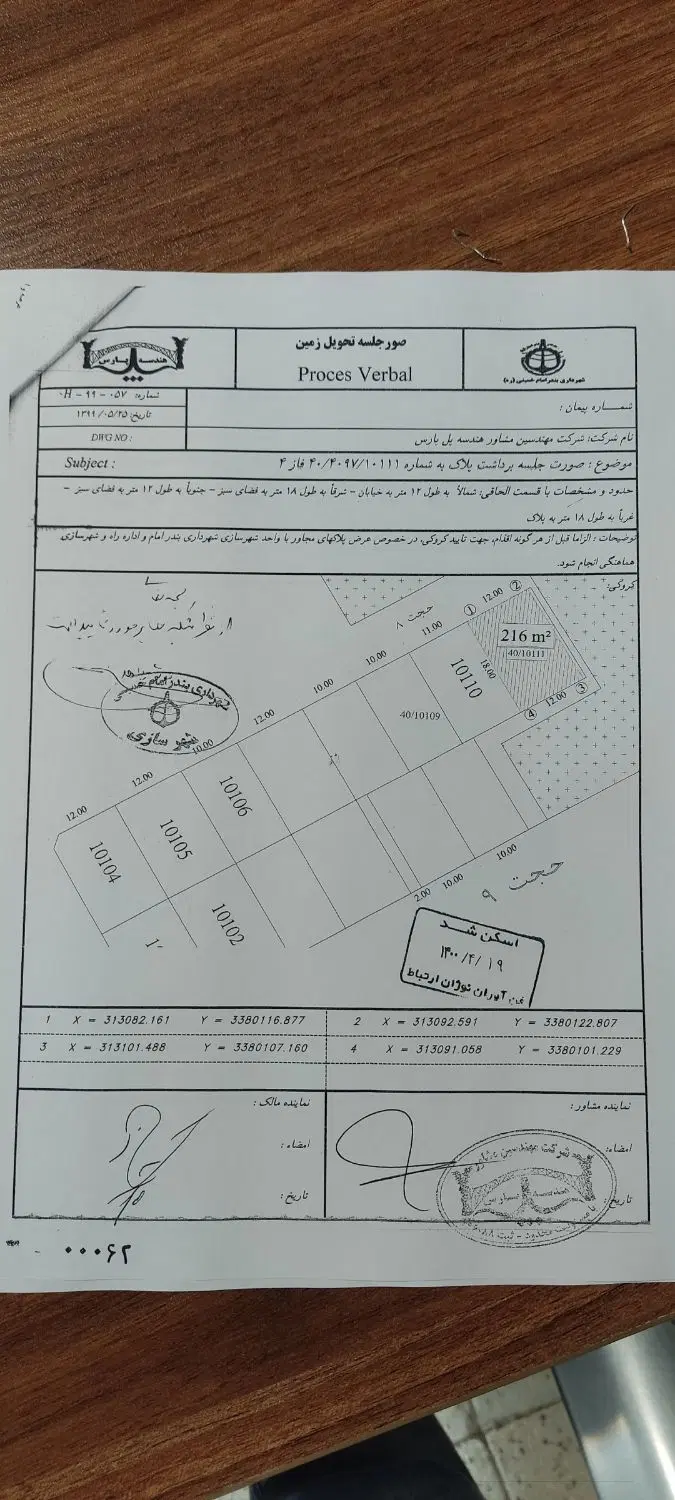 صورجلسه تحویل زمین
Proces Verbal
هندسه پارس
شهرداری بندر امام خمینی (ره)
شماره: ۰۵۷ - ۹۹ - H۰
تاریخ: ۱۳۹۹/۰۵/۲۵
شمـــاره پیمان :
DWG NO :
نام شرکت: شرکت مهندسین مشاور هندسه پل پارس
Subject :
موضوع : صورت جلسه برداشت پلاک به شماره ۴۰/۴۰۹۷/۱۰۱۱۱ فاز ۴
حدود و مشخصات با قسمت الحاقی: شمالاً به طول ۱۲ متر به خیابان - شرقاً به طول ۱۸ متر به فضای سبز - جنوباً به طول ۱۲ متر به فضای سبز -
غرباً به طول ۱۸ متر به پلاک
توضیحات : الزاما قبل از هر گونه اقدام، جهت تایید کروکی، در خصوص عرض پلاکهای مجاور با واحد شهرسازی شهرداری بندر امام و اداره راه و شهرسازی
هماهنگی انجام شود.
کروکی:
شهرداری بندر امام خمینی
شهرسازی
حجت ۸
1
12.00
2
216 m²
40/10111
18.00
4
12.00
3
11.00
10110
10.00
40/10109
10.00
12.00
10.00
12.00
12.00
10106
10105
10104
10102
2.00
10.00
10.00
حجت ۹
اسکن شد
۱۴۰۰/۴/۱۹
فن آوران نوژان ارتباط
1 X = 313082.161 Y = 3380116.877
2 X = 313092.591 Y = 3380122.807
3 X = 313101.488 Y = 3380107.160
4 X = 313091.058 Y = 3380101.229
نماینده مشاور :
امضاء:
تاریخ :
نماینده مالک :
امضاء :
تاریخ :
شرکت مهندسین مشاور
هندسه پارس
۰۰۰۶۲